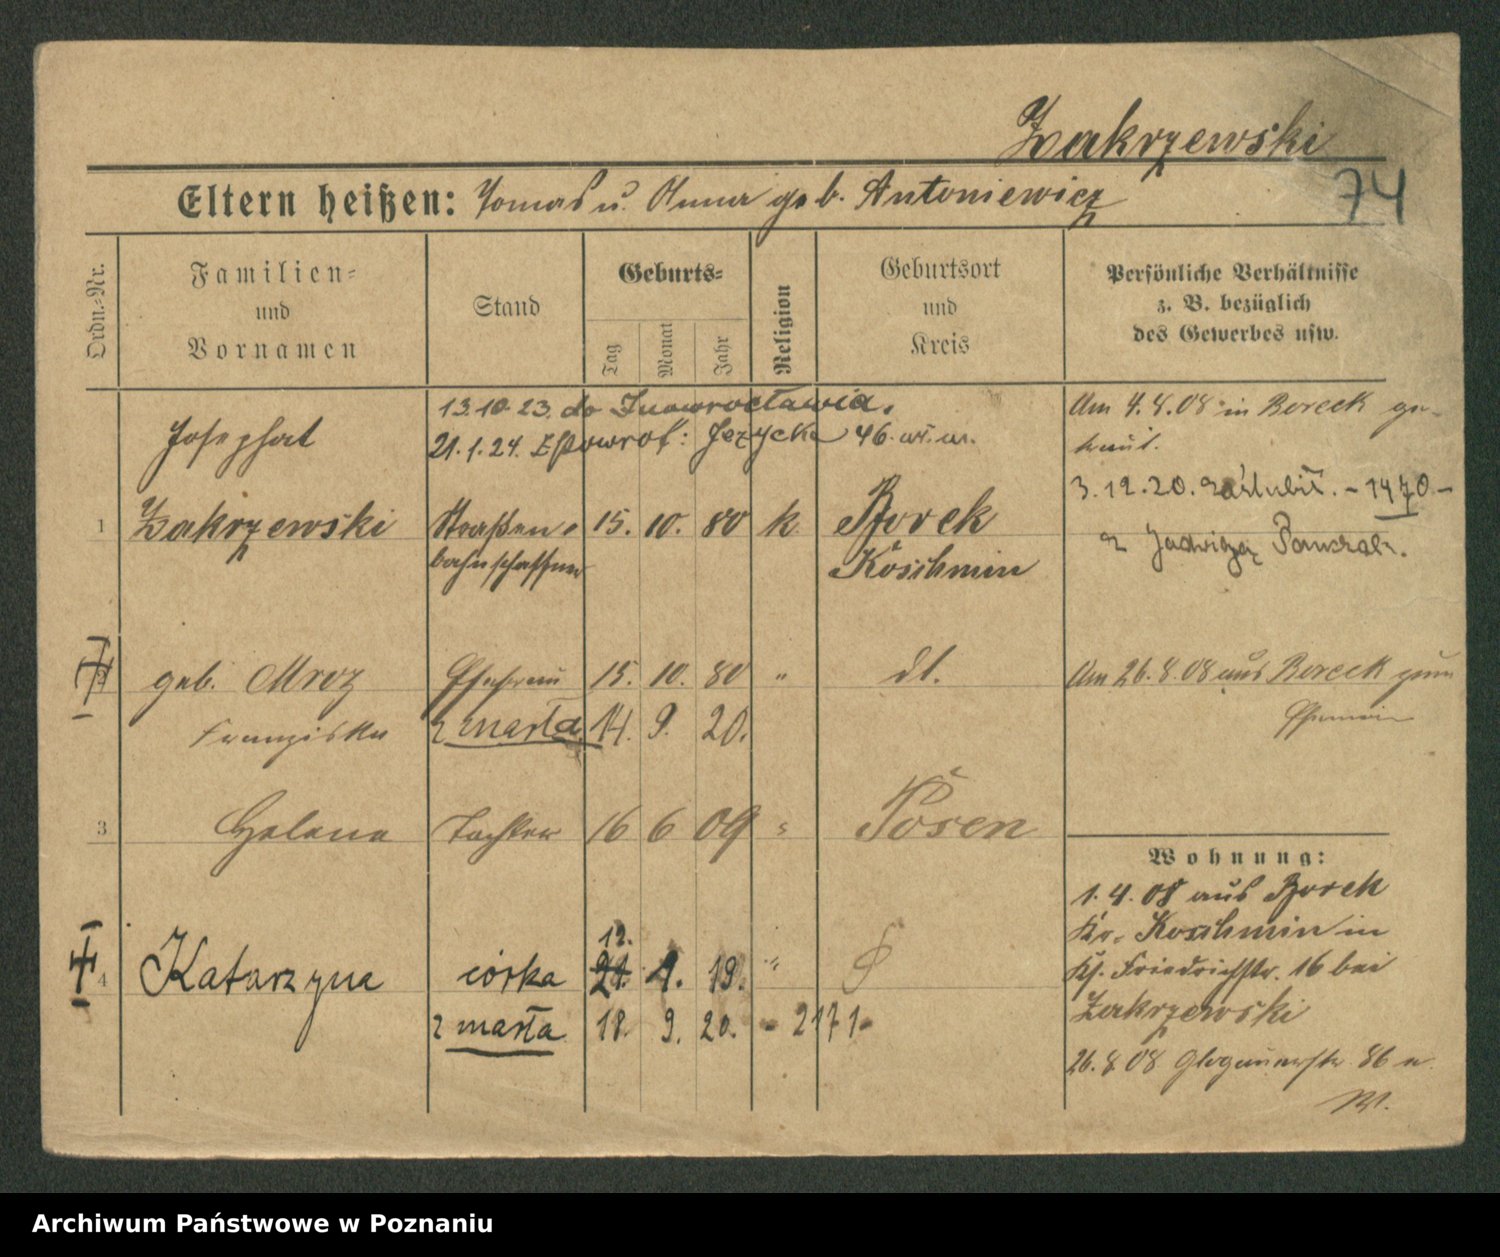 Zakrzewski
74
Eltern heißen: Tomas u. Anna geb. Antoniewicz
Ordn.=Nr.
Familien=
und
Vornamen
Stand
Geburts=
Tag
Monat
Jahr
Religion
Geburtsort
und
Kreis
Persönliche Verhältnisse
z. B. bezüglich
des Gewerbes usw.
13.10.23. do Inowrocławia.
21.1.24. z powrot: Jezycka 46. wł. m.
Josephat
1 Zakrzewski Straßen= 15. 10. 80 k. Borek
bahnschaffner Koschmin
Am 4.4.08 in Boreck ge-
traut.
3.12.20. zaślubił. - 1470 -
z Jadwigą
2 geb. Mroz Ehefrau 15. 10. 80 " dt.
Franziska zmarła 14. 9. 20.
Am 26.8.08 aus Boreck zum
Ehemann
3 Helene Tochter 16 6 09 " Posen
12.
4 Katarzyna córka 21. 1. 19. "
zmarła 18. 9. 20. - 2171-
Wohnung:
1.4.08 aus Borek
Kr. Koschmin in
Friedrichstr. 16 bei
Zakrzewski
26.8.08 Glogauerstr. 86
Archiwum Państwowe w Poznaniu